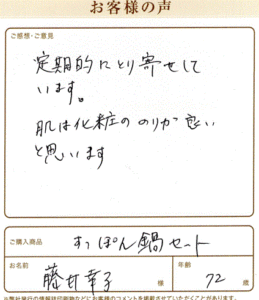 お客様の声
ご感想・ご意見
定期的にとり寄せして
います。
肌は化粧ののりが良い
と思います
ご購入商品
すっぽん鍋セート
お名前
藤井幸子
様
年齢
72
歳
※弊社発行の情報誌印刷物などにお客様のコメントを掲載させていただくことがあります。